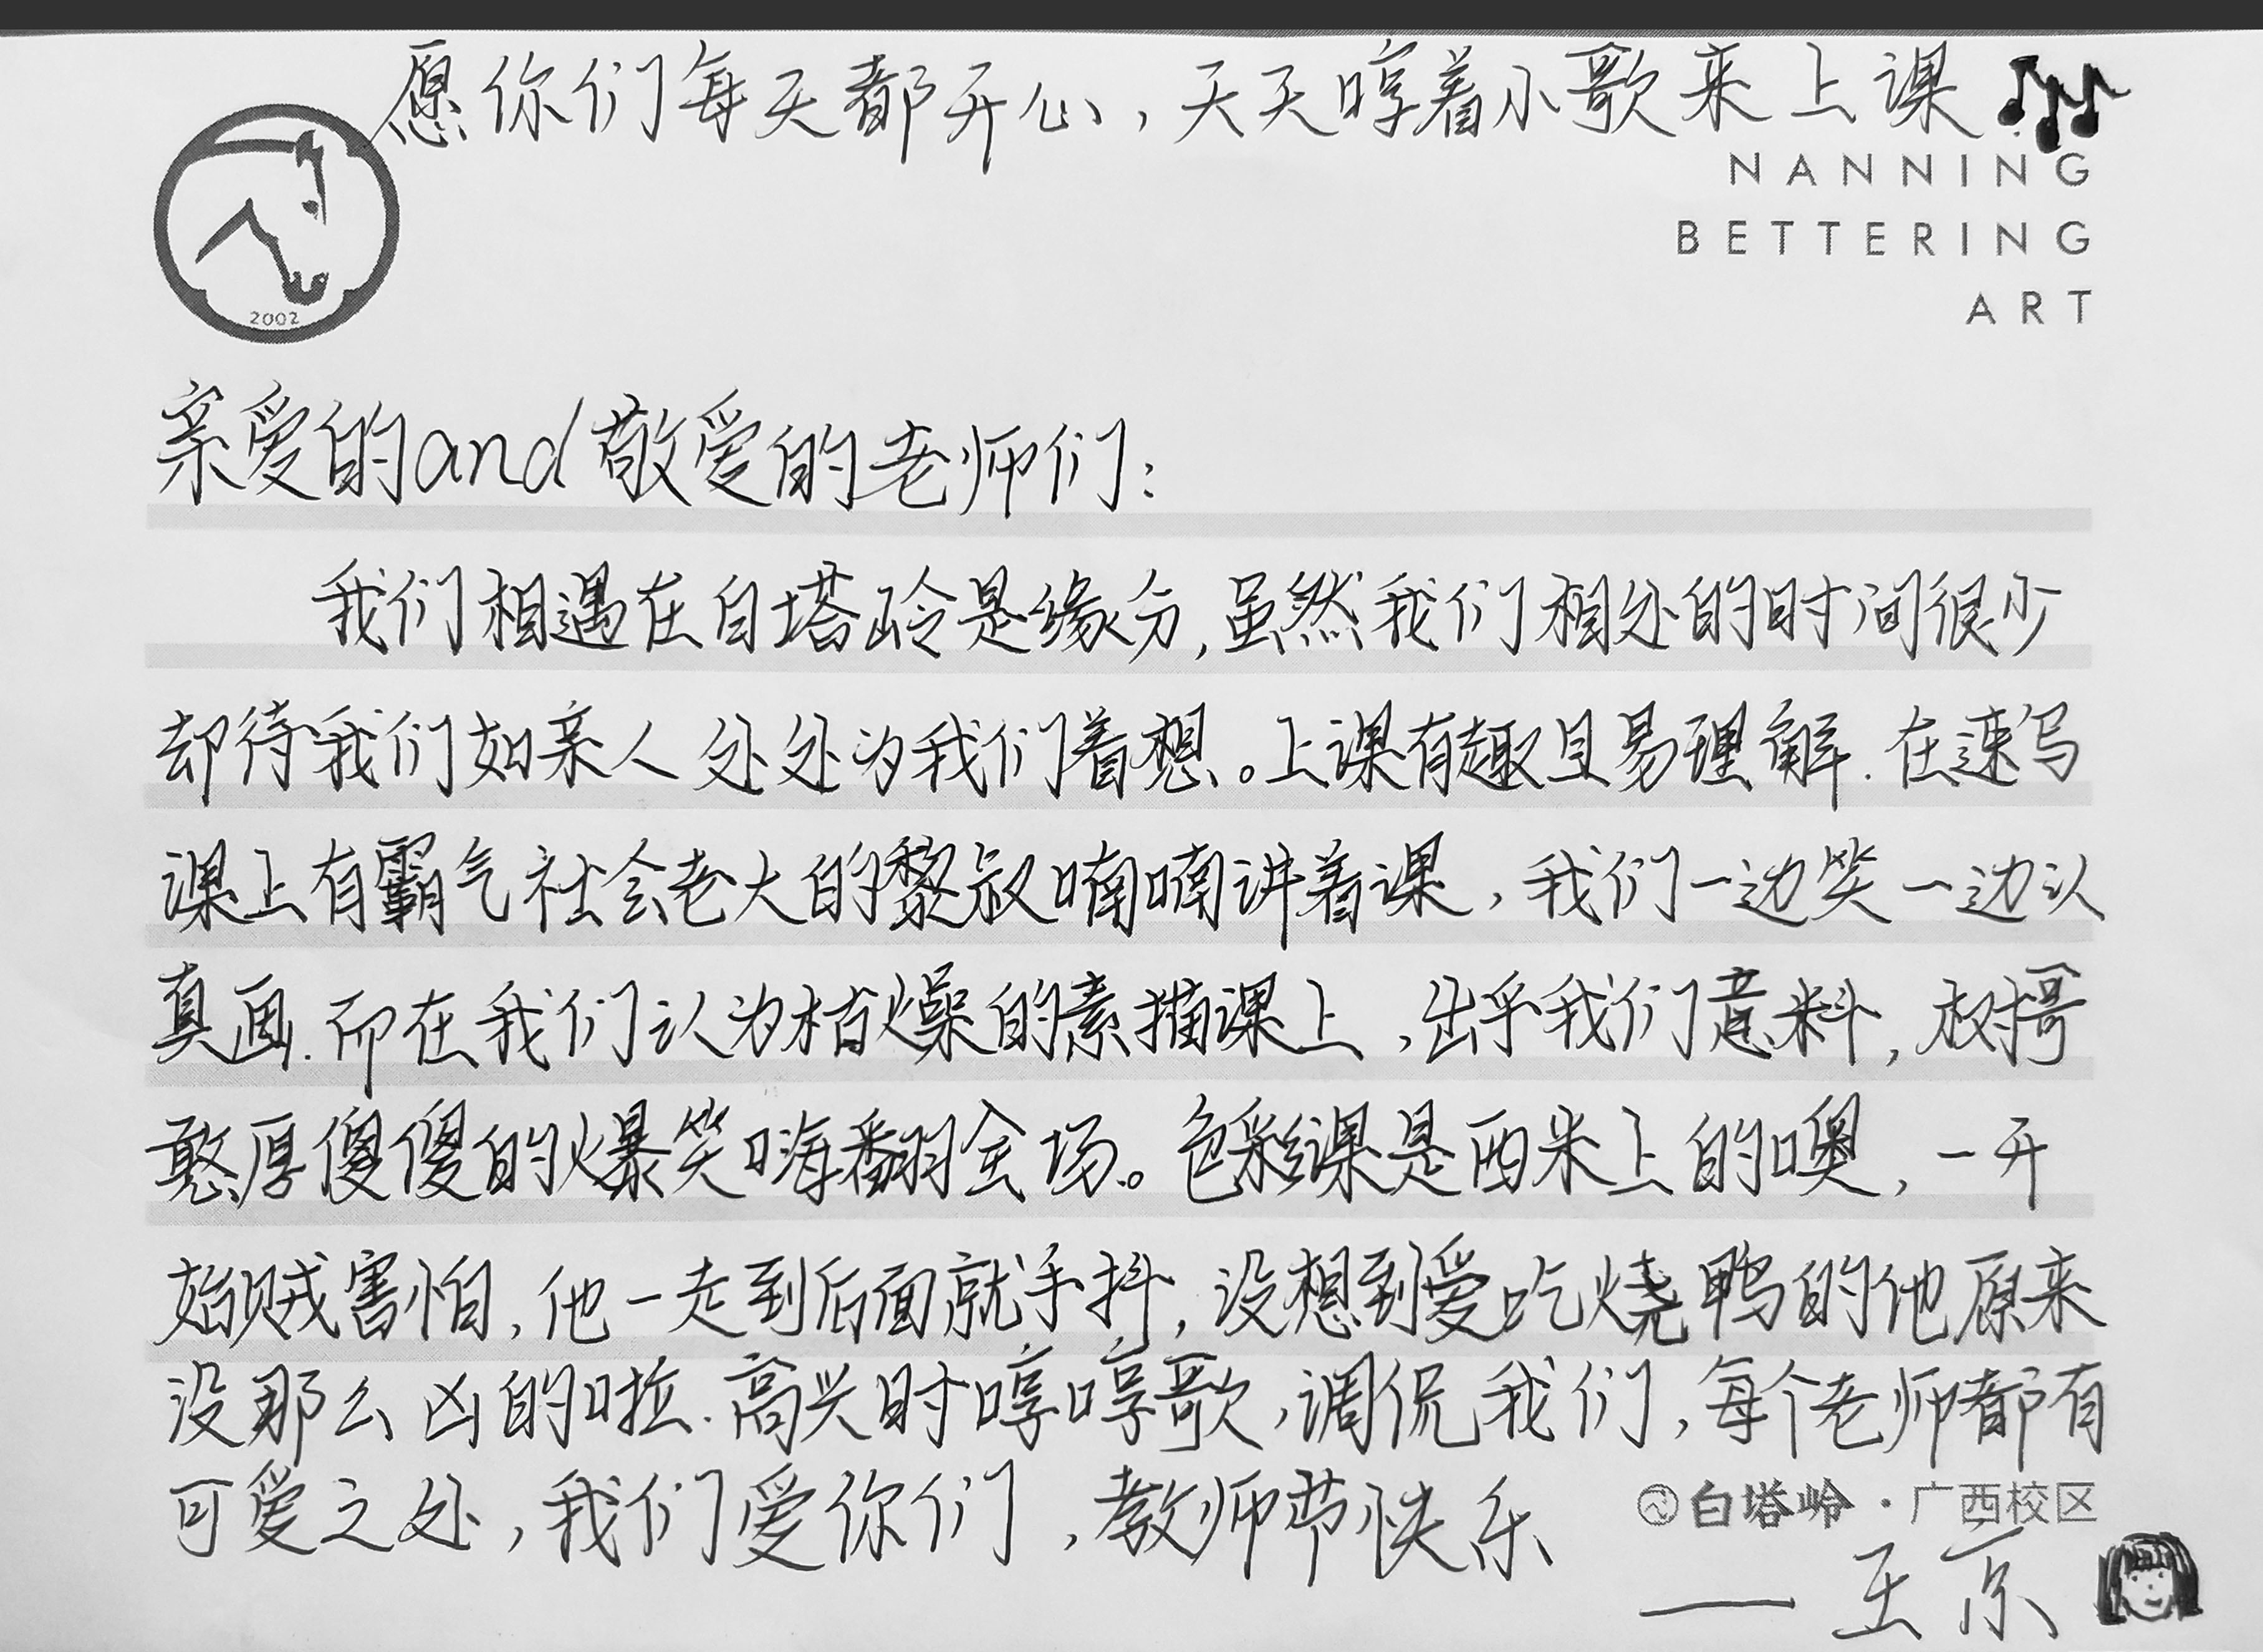 愿你们每天都开心，天天哼着小歌来上课
2002
NANNING
BETTERING
ART
亲爱的and敬爱的老师们：
我们相遇在白塔岭是缘分，虽然我们相处的时间很少
却待我们如亲人 处处为我们着想。上课有趣且易理解.在速写
课上有霸气社会老大的黎叔喃喃讲着课，我们一边笑一边认
真画.而在我们认为枯燥的素描课上，出乎我们意料，树哥
憨厚傻傻的爆笑嗨翻全场。色彩课是西米上的噢，一开
始贼害怕，他一走到后面就手抖，没想到爱吃烧鸭的他原来
没那么凶的啦.高兴时哼哼歌，调侃我们，每个老师都有
可爱之处，我们爱你们，教师节快乐
白塔岭·广西校区
——王京